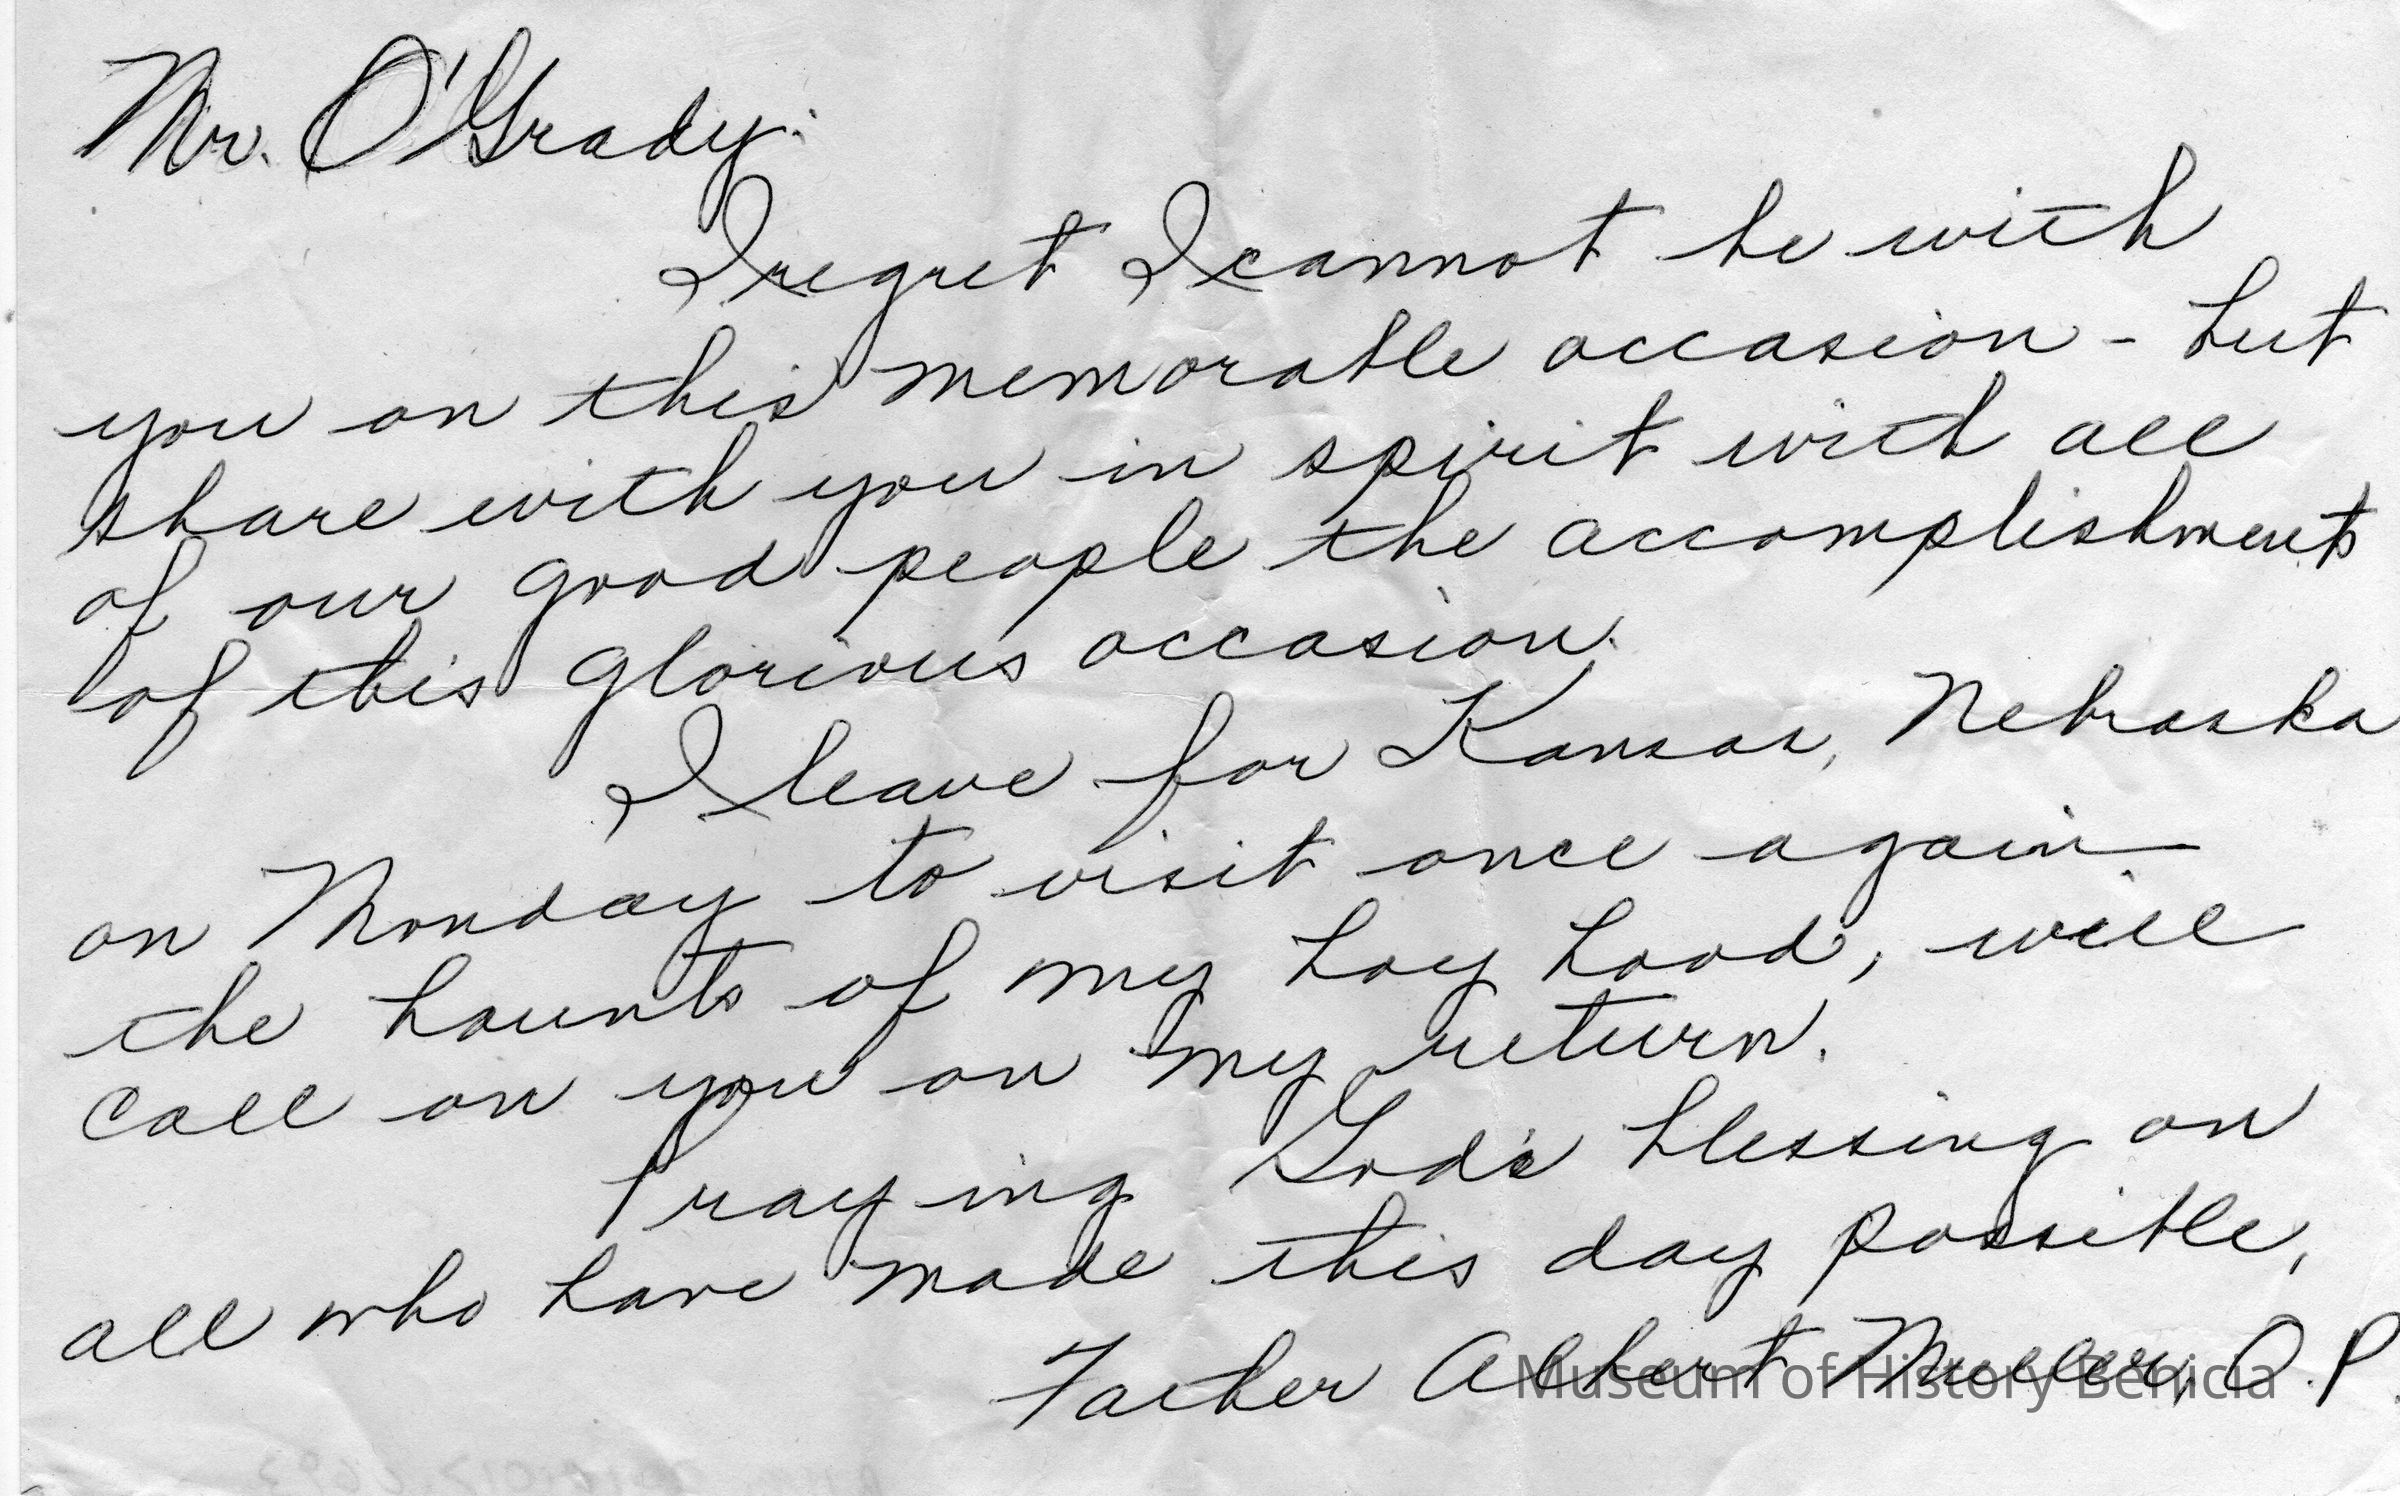 Mr. O'Grady:
I regret I cannot be with
you on this memorable occasion - but
share with you in spirit with all
of our good people the accomplishments
of this glorious occasion.
I leave for Kansas, Nebraska
on Monday to visit once again
the haunts of my boy hood, will
call on you on my return.
Praying God's blessing on
all who have made this day possible,
Father Albert Mueller, O.P.
Museum of History Benicia